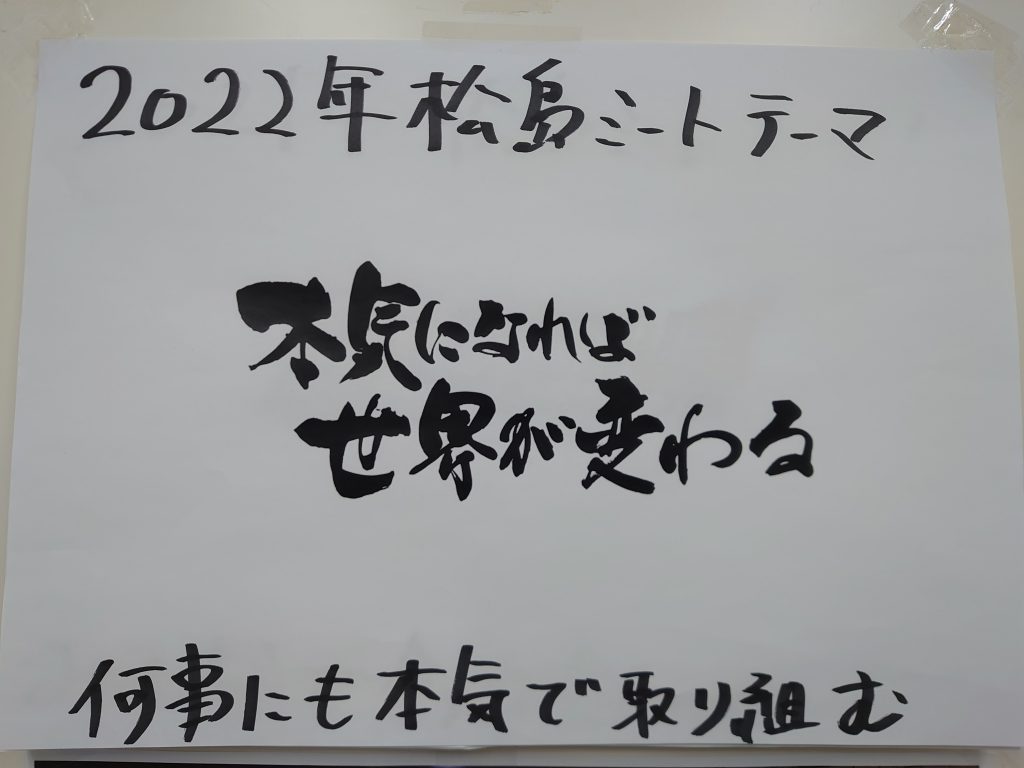 2022年松島ミートテーマ
本気になれば
世界が変わる
何事にも本気で取り組む